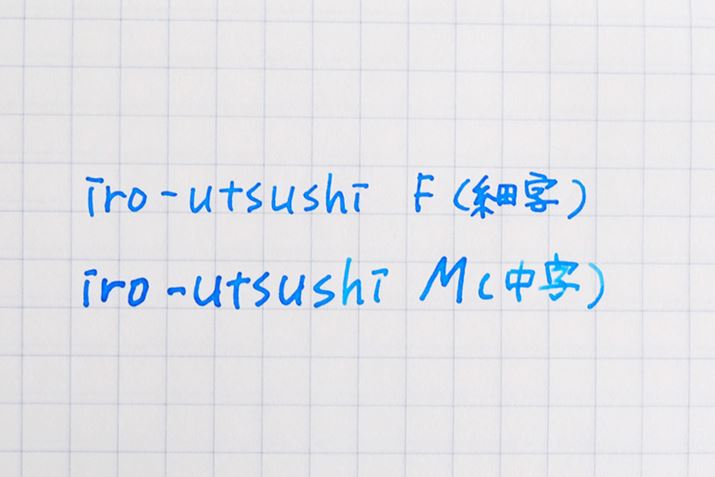 iro-utsushi F (細字)
iro-utsushi M (中字)